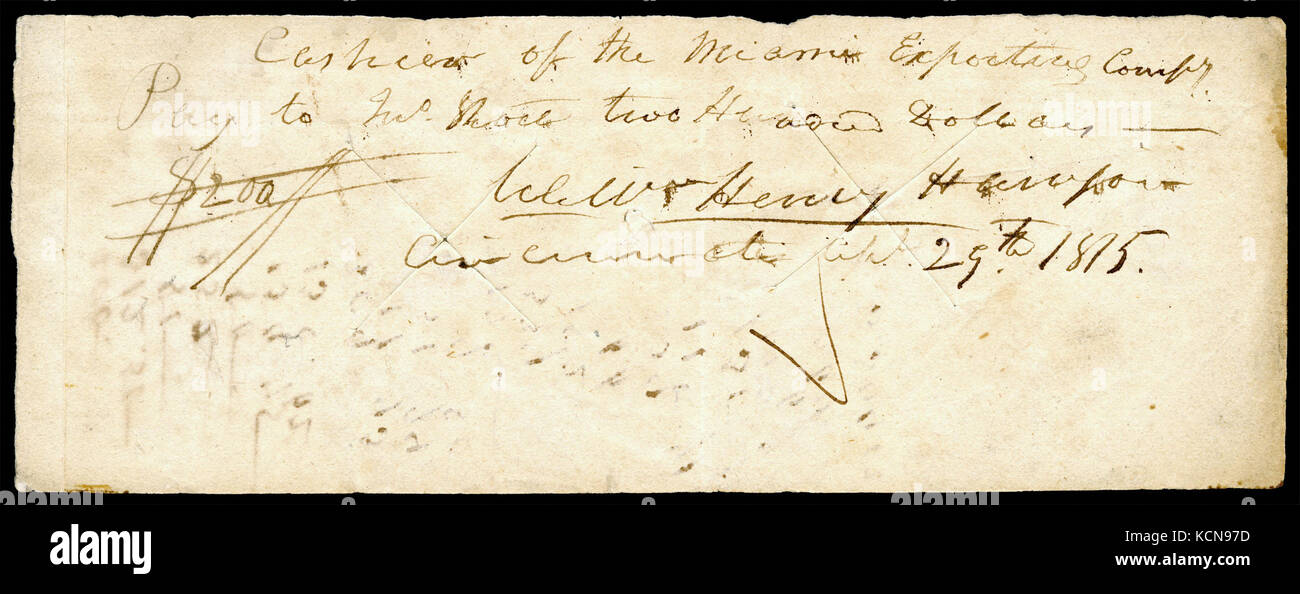 Cashier of the Miami Exporting Compy.
Pay to Jno. two Hundred Dollars —
$200 Wm Henry Harrison
Cincinnati Apl. 29th 1815.
alamy
Image ID: KCN97D
www.alamy.com